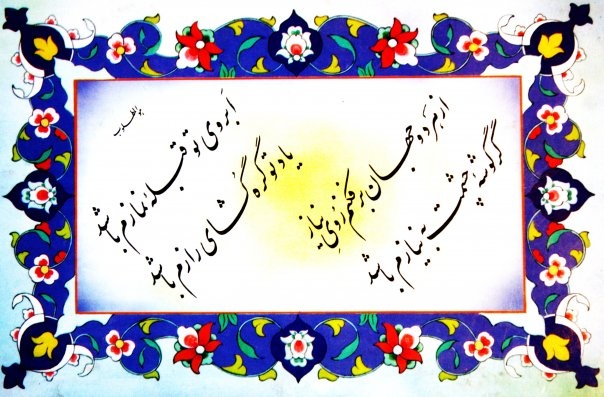 ابروی تو قبلهٔ نمازم باشد
یاد تو گره گشای رازم باشد
از هر دو جهان برفکنم روی نیاز
گر گوشهٔ چشمت به نیازم باشد